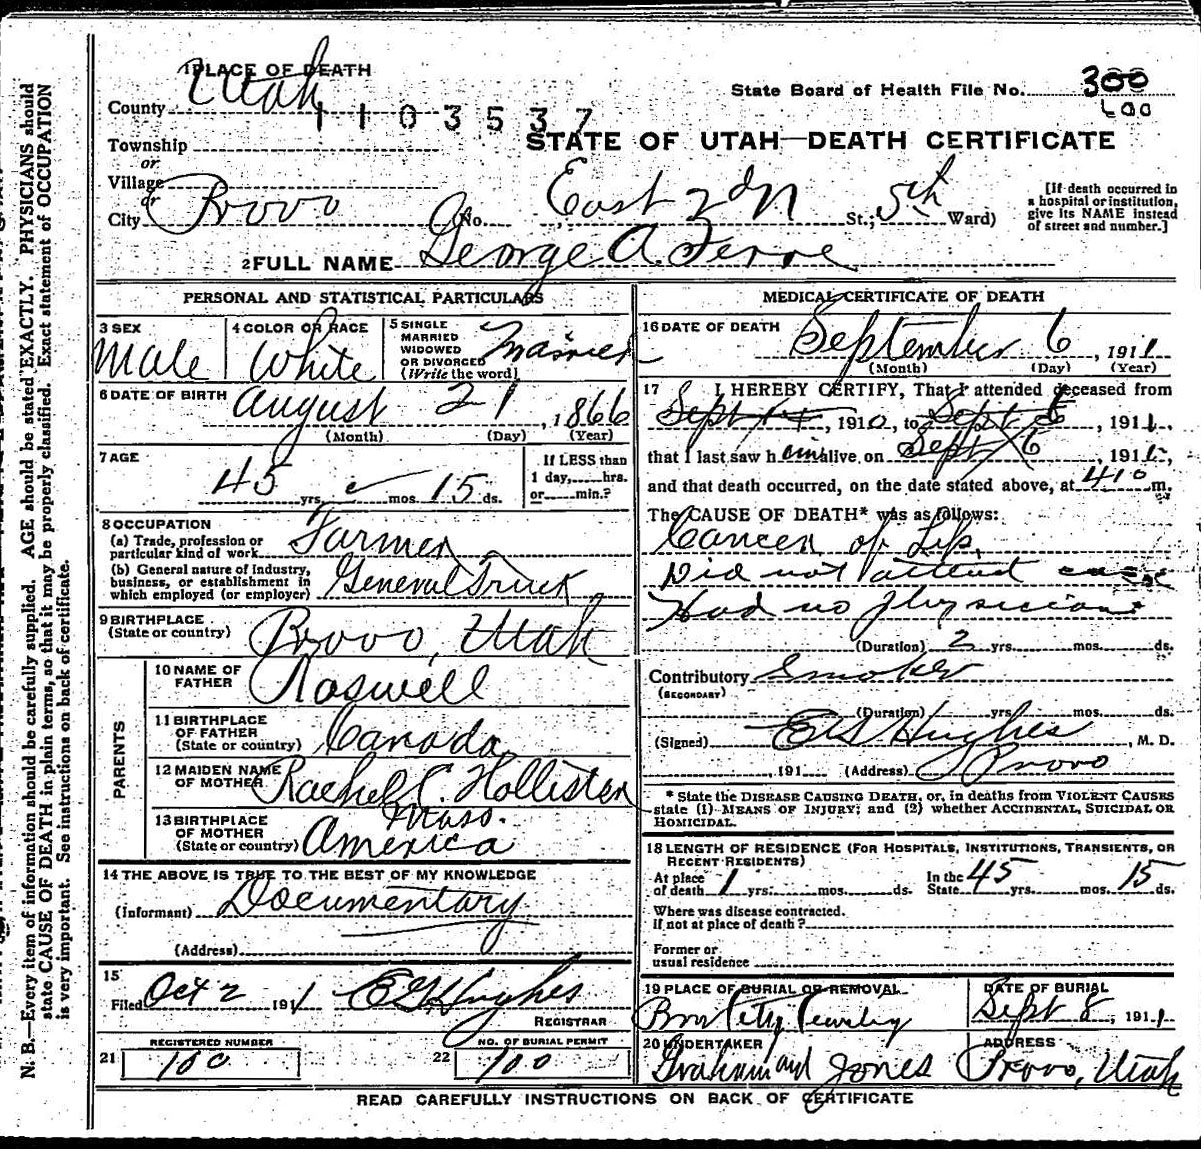 1 PLACE OF DEATH
County Utah
1103537
State Board of Health File No. 300
STATE OF UTAH—DEATH CERTIFICATE
Township
or
Village
or
City Provo No. East 2d N St.; 5th Ward)
[If death occurred in a hospital or institution, give its NAME instead of street and number.]
2 FULL NAME George A Ferre
PERSONAL AND STATISTICAL PARTICULARS
3 SEX Male
4 COLOR OR RACE White
5 SINGLE MARRIED WIDOWED OR DIVORCED (Write the word) Married
6 DATE OF BIRTH August 21, 1866
(Month) (Day) (Year)
7 AGE 45 yrs. mos. 15 ds.
If LESS than 1 day, hrs. or min.?
8 OCCUPATION
(a) Trade, profession or particular kind of work Farmer
(b) General nature of industry, business, or establishment in which employed (or employer) General Truck
9 BIRTHPLACE (State or country) Provo, Utah
PARENTS
10 NAME OF FATHER Roswell
11 BIRTHPLACE OF FATHER (State or country) Canada
12 MAIDEN NAME OF MOTHER Rachel C. Hollister
13 BIRTHPLACE OF MOTHER (State or country) Mass. America
14 THE ABOVE IS TRUE TO THE BEST OF MY KNOWLEDGE
(Informant) Documentary
(Address)
15
Filed Oct 2 1911 E G Hughes
REGISTRAR
REGISTERED NUMBER
21 100
NO. OF BURIAL PERMIT
22 100
MEDICAL CERTIFICATE OF DEATH
16 DATE OF DEATH September 6, 1911
(Month) (Day) (Year)
17 I HEREBY CERTIFY, That I attended deceased from
Sept 14, 1910, to Sept 6, 1911,
that I last saw him alive on Sept 6, 1911,
and that death occurred, on the date stated above, at 410 m.
The CAUSE OF DEATH* was as follows:
Cancer of Lip.
Did not attend case
Had no Physician
(Duration) 2 yrs. mos. ds.
Contributory Smoker
(SECONDARY)
(Duration) yrs. mos. ds.
(Signed) E G Hughes, M. D.
, 191 (Address) Provo
* State the DISEASE CAUSING DEATH, or, in deaths from VIOLENT CAUSES
state (1) MEANS OF INJURY; and (2) whether ACCIDENTAL, SUICIDAL OR
HOMICIDAL.
18 LENGTH OF RESIDENCE (FOR HOSPITALS, INSTITUTIONS, TRANSIENTS, OR
RECENT RESIDENTS)
At place of death 1 yrs. mos. ds. In the State 45 yrs. mos. 15 ds.
Where was disease contracted.
If not at place of death?
Former or
usual residence
19 PLACE OF BURIAL OR REMOVAL
DATE OF BURIAL
Sept 8, 1911
20 UNDERTAKER
Graham and Jones
ADDRESS
Provo, Utah
READ CAREFULLY INSTRUCTIONS ON BACK OF CERTIFICATE
N. B.—Every item of information should be carefully supplied. AGE should be stated EXACTLY. PHYSICIANS should
state CAUSE OF DEATH in plain terms, so that it may be properly classified. Exact statement of OCCUPATION
is very important. See instructions on back of certificate.